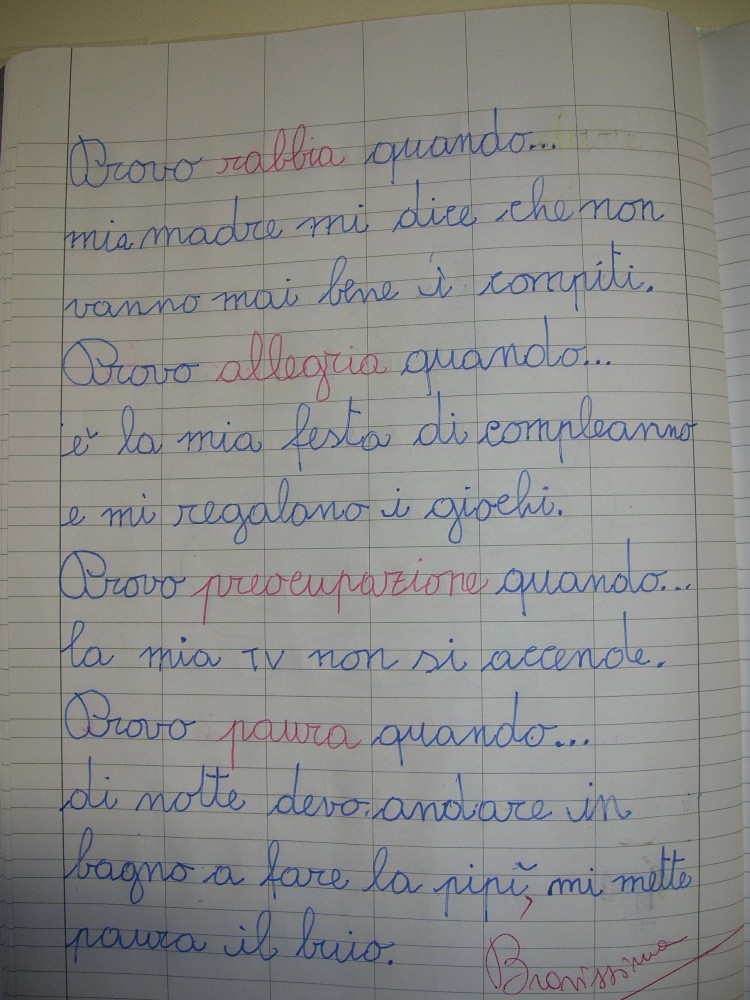 Provo rabbia quando...
mia madre mi dice che non
vanno mai bene i compiti.
Provo allegria quando...
è la mia festa di compleanno
e mi regalano i giochi.
Provo preocupazione quando...
la mia TV non si accende.
Provo paura quando...
di notte devo andare in
bagno a fare la pipì, mi mette
paura il buio.
Bravissima